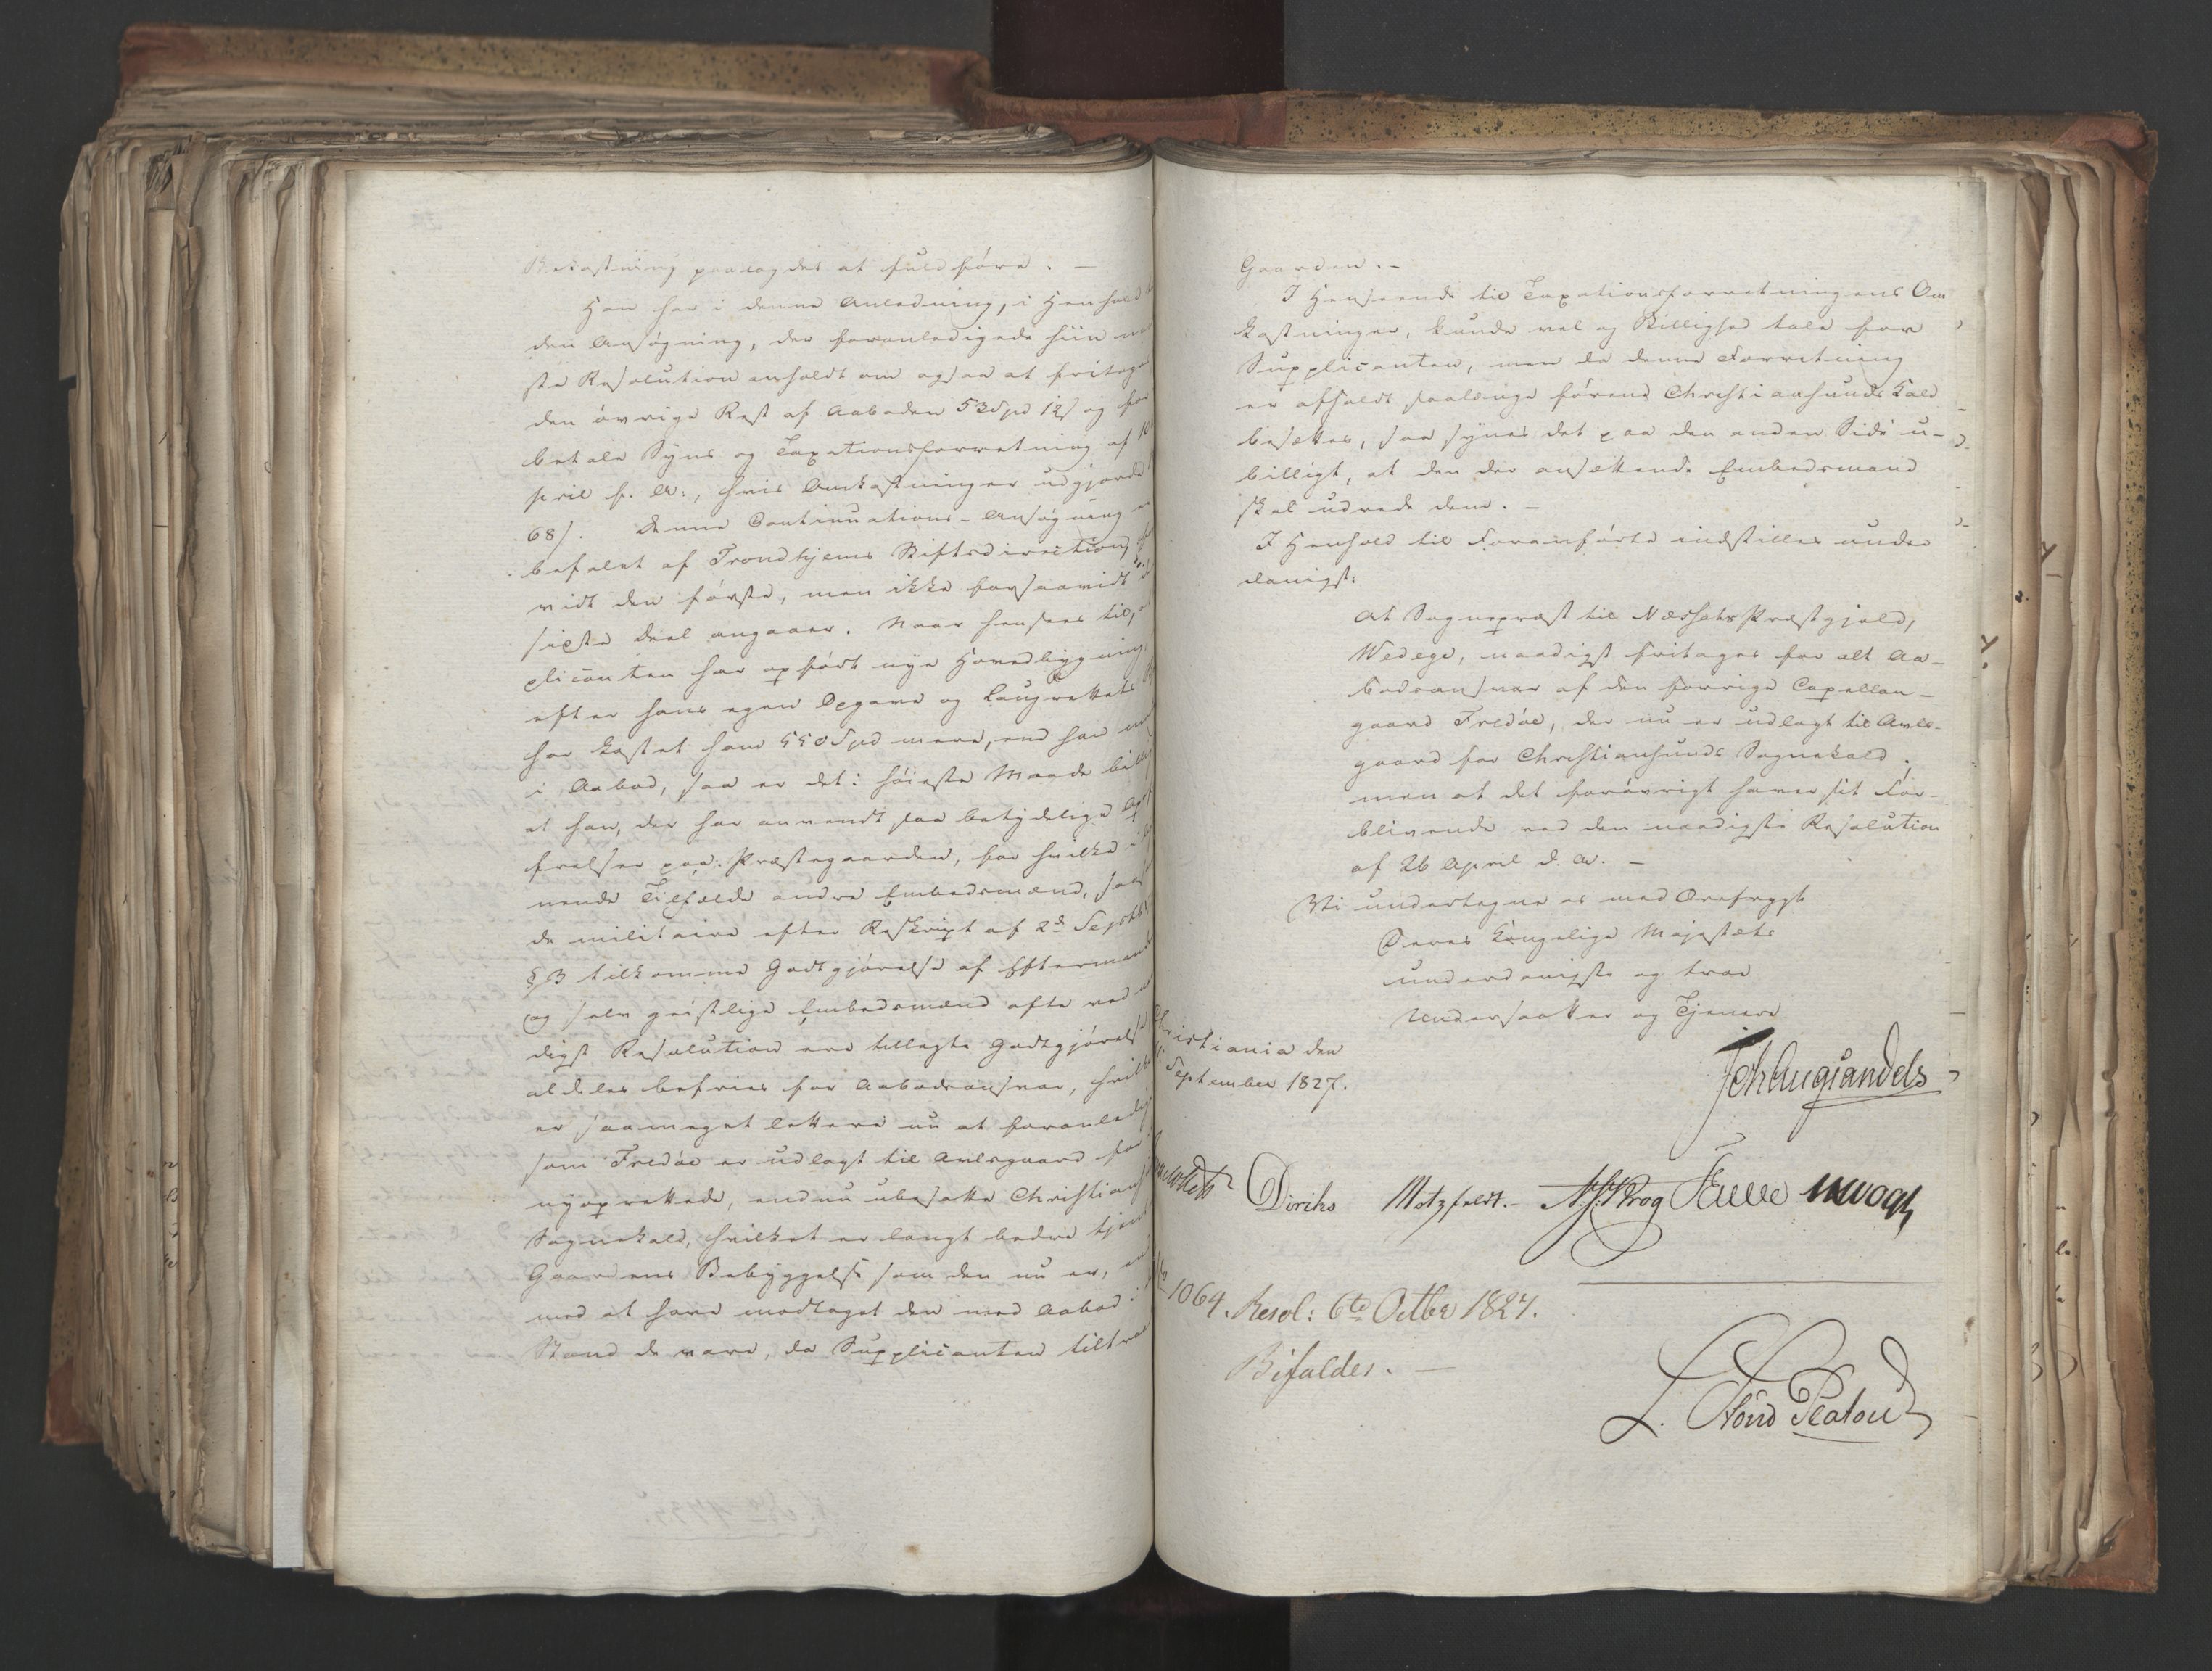 Bekostning paalagdes at fuldføre. –
Han har i denne Anledning, i Henhold
den Ansøgning, der foranledigede hiin
ste Resolution anholdt om ogsaa at fritages
den øvrige Rest af Aaboden 53 Spd 12 s og for
betale Syns og Taxationsforretning af
pril f. A., hvis Omkostninger udgjorde
68 s. Denne Continuations-Ansøgning er
befalet af Trondhjems Stiftsdirection
vidt den første, men ikke forsaavidt
sidste Deel angaaer. Naar hensees til,
plicanten har opført nye Hovedbygning
efter hans egen Opgave og Laugrettets
har kostet ham 550 Spd mere, end han
i Aabod, saa er det i høieste Maade billigt
at han, der har anvendt saa betydelige
frelser paa Præstegaarden, for hvilke i
nende Tilfælde andre Embedsmænd,
de militaire efter Reskript af 2d Septbr
§ 3 tilkomme Godtgjørelse af Eftermand
og selv geistlige Embedsmænd ofte ved
digst Resolution ere tillagte Godtgjørelse,
aldeles befries for Aabodsansvar, hvilket
er saameget lettere nu at foranledige
som Fredøe er udlagt til Avlsgaard for
nyoprettede, endnu ubesatte Christiansunds
Sognekald, hvilket er langt bedre tjent
Gaardens Bebyggelse som den nu er,
med at have modtaget den med Aabod i
Stand de vare, da Supplicanten tiltraadte
Gaarden. –
I Henseende til Taxationsforretningens Om
kostninger, kunde vel og Billighed tale for
Supplicanten, men da denne Forretning
er afholdt saalænge førend Christiansunds Kald
besættes, saa synes det paa den anden Side u-
billigt, at den der ansættende Embedsmand
skal udrede dem. –
I Henhold til Foranførte indstilles under
danigst:
At Sognepræst til Næssets Præstegjeld,
Wedege, naadigst fritages for alt Aa-
bodsansvar af den forrige Capellan-
gaard Fredøe, der nu er udlagt til Avls-
gaard for Christiansunds Sognekald,
men at det forøvrigt haver sit For-
blivende ved den naadigste Resolution
af 26 April d. A. –
Vi undertegne os med Ærefrygt
Deres Kongelige Majestæts
underdanigste og troe
Undersaatter og Tjenere
Christiania den
September 1827.
Joh Aug Sandels
Diriks Motzfeldt. – Krog Fauve
No 1064. Resol: 6te Octbr 1827.
Bifaldes. –
L. Stoud Platou